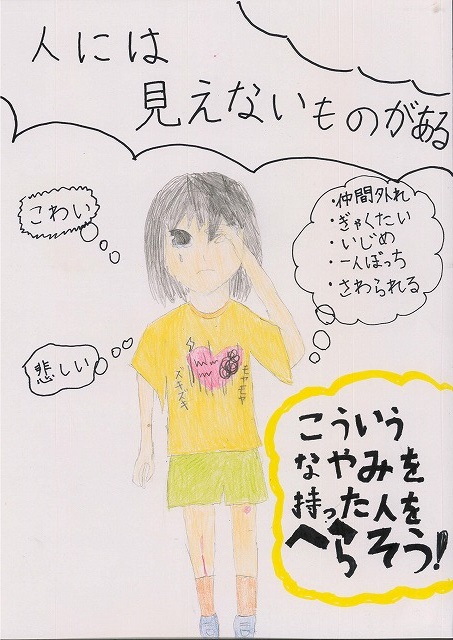 人には
見えないものがある
こわい
・仲間外れ
・ぎゃくたい
・いじめ
・一人ぼっち
・さわられる
悲しい
ズキズキ
モヤモヤ
こういう
なやみを
持った人を
へらそう!